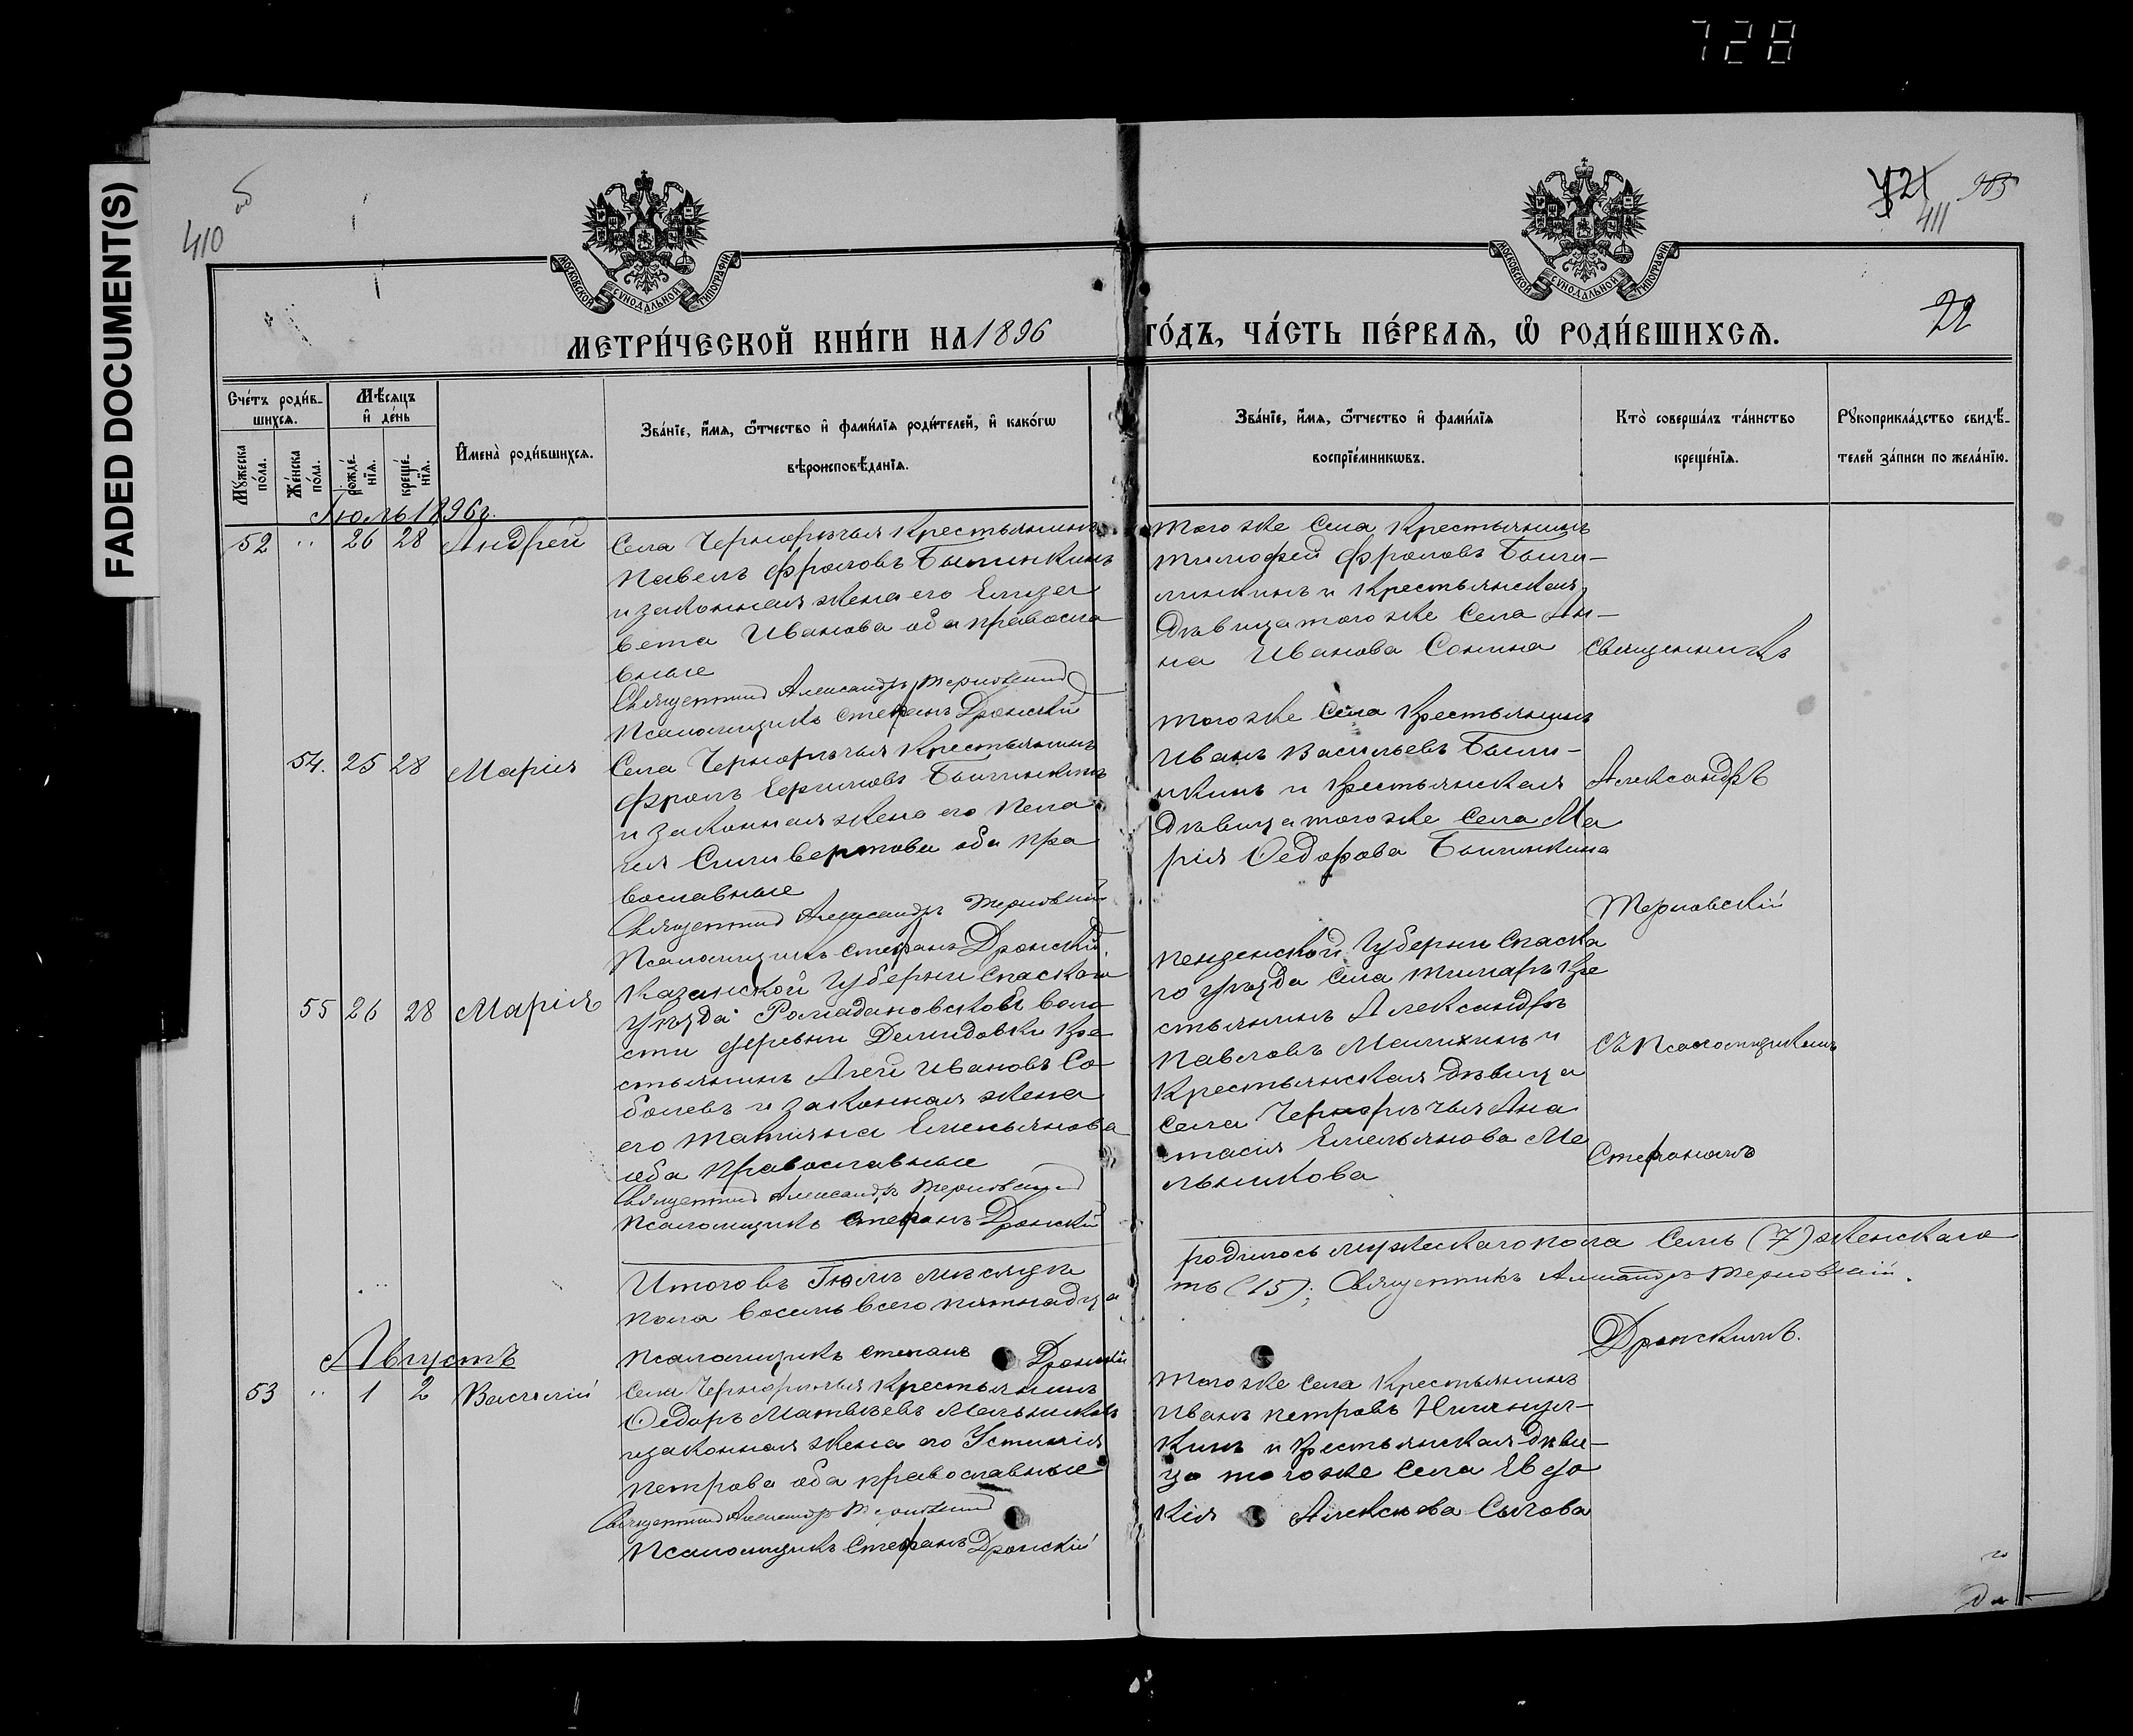 728
FADED DOCUMENT(S)
410
об
421
411
22
МОСКОВСКОЙ СѴНОДАЛЬНОЙ ТИПОГРАФІИ
МОСКОВСКОЙ СѴНОДАЛЬНОЙ ТИПОГРАФІИ
МЕТРИ́ЧЕСКОЙ КНИ́ГИ НА 1896
ГО́ДЪ, ЧА́СТЬ ПЕ́РВАѦ, Ѡ҆ РОДИ́ВШИХСѦ.
Сче́тъ роди́в-
шихсѧ.
Мꙋ́жеска по́ла.
Же́нска по́ла.
Мѣ́сѧцъ и҆ де́нь
рожде́-нїѧ.
креще́-нїѧ.
И҆мена̀ роди́вшихсѧ.
Зва́нїе, и҆́мѧ, ѻ҆́тчество и҆ фами́лїѧ роди́телей, и҆ како́гѡ
вѣроисповѣ́данїѧ.
Зва́нїе, и҆́мѧ, ѻ҆́тчество и҆ фами́лїѧ
воспрїе́мникѡвъ.
Кто̀ соверша́лъ та́инство
креще́нїѧ.
Рꙋкоприкла́дство свидѣ́-
телей за́писи по жела́нїю.
Іюль 1896 г.
52 " 26 28 Андрей
Села Чернорѣчья Крестьянинъ
Павелъ Фроловъ
и законная жена его Елиза
вета Иванова оба правосла
вные
Священникъ Александръ Терновскій
Псаломщикъ Стефанъ Дронскій
Того же Села Крестьянинъ
Тимофей Фроловъ
и Крестьянская
Дѣвица того же Села Ан-
на Иванова Сонина
Священникъ
54. 25 28 Марія
Села Чернорѣчья Крестьянинъ
Фролъ Ефимовъ
и законная жена его Пела
гія Сильвертова оба пра
вославные
Священникъ Александръ Терновскій
Псаломщикъ Стефанъ Дронскій
Того же Села Крестьянинъ
Иванъ Васильевъ
и Крестьянская
Дѣвица того же Села Ма
рія Ѳедорова
Александръ
Терновскій
55 26 28 Марія
Казанской Губерніи Спаской
Уѣзда Рамадановской воло
сти деревни Демидовки Кре
стьянинъ Агей Ивановъ Со-
болевъ и законная жена
его Татіяна Емельянова
оба Православные
Священникъ Александръ Терновскій
Псаломщикъ Стефанъ Дронскій
Пензенской Губерніи Спаска
го уѣзда Села Тимаръ Кре
стьянинъ Александръ
Павловъ Малихинъ и
Крестьянская дѣвица
Села Чернорѣчья Ана
тасія Емельянова Ме
льникова
Съ Псаломщикомъ
Стефаномъ
Дронскимъ.
Итого въ Іюлѣ мѣсяцѣ
родилось мужескаго пола Семь (7) женскаго
пола восемь всего пятнадца
ть (15); Священникъ Александръ Терновскій.
Псаломщикъ Стефанъ Дронскій
Августъ
53 " 1 2 Василій
Села Чернорѣчья Крестьянинъ
Ѳедоръ Матвѣевъ Мельниковъ
и законная жена его Устинія
Петрова оба православные
Священникъ Александръ Терновскій
Псаломщикъ Стефанъ Дронскій
Того же Села Крестьянинъ
Иванъ Петровъ
и Крестьянская дѣви-
ца того же Села Евдо
кія Алексѣева Сычова